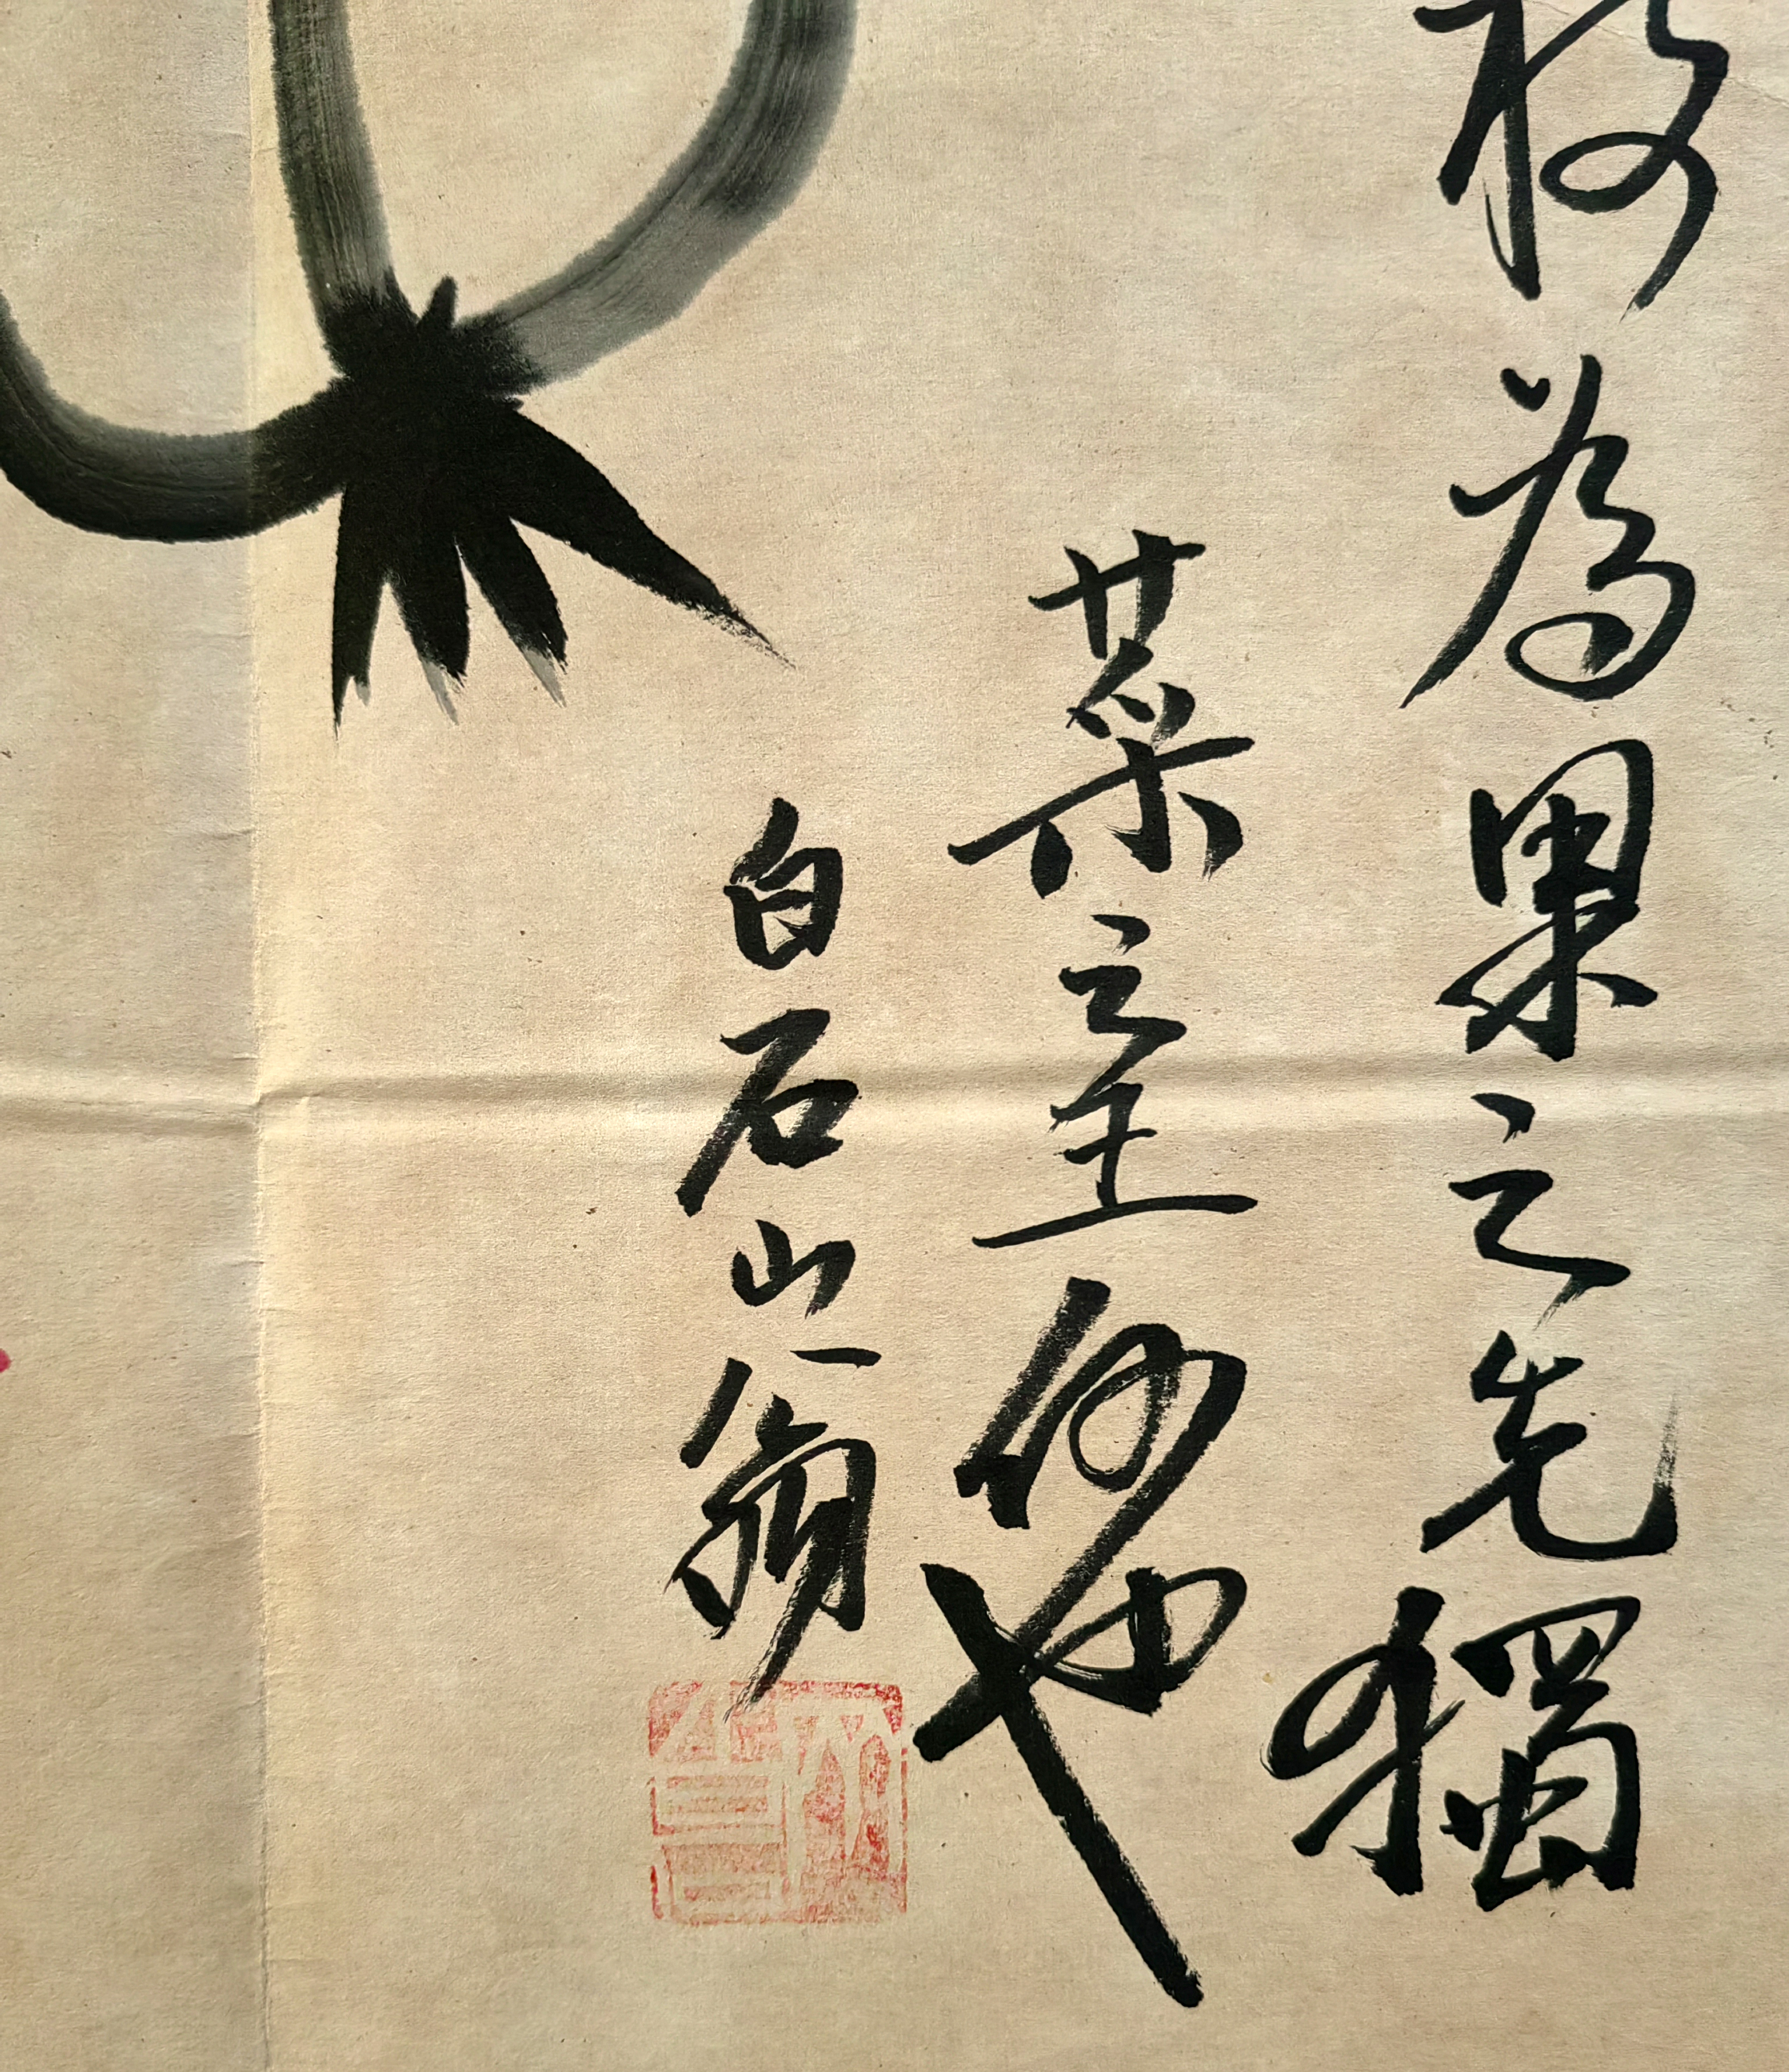 枝為果之先獨
菜之王何也
白石山翁